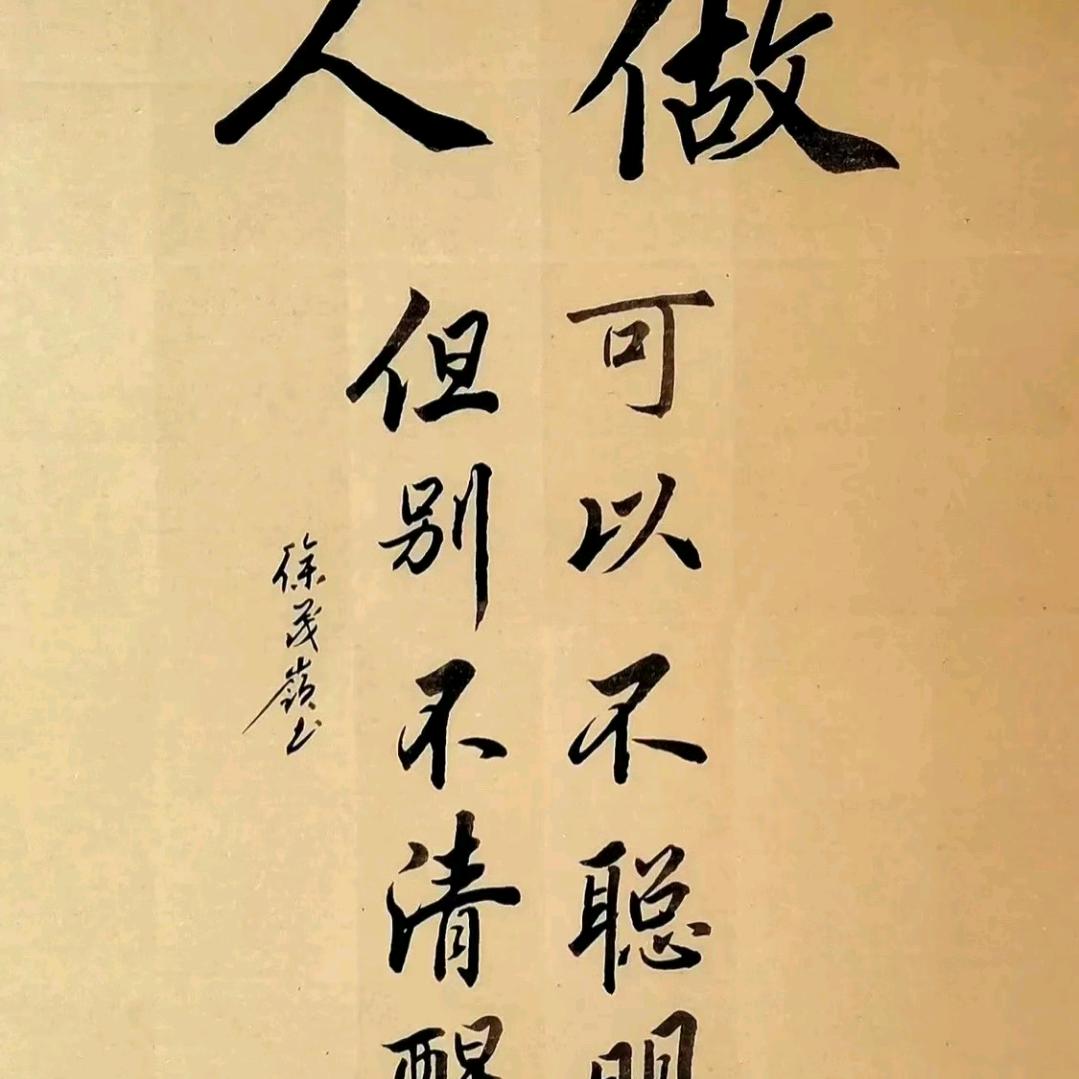 做人
可以不聪明
但别不清醒
徐茂嶺书